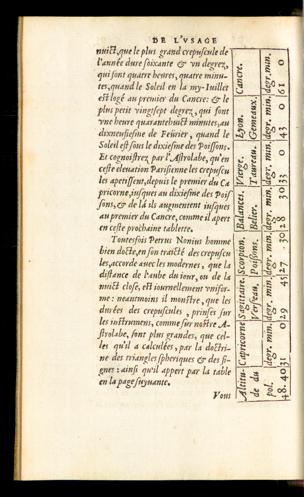 DE L'VSAGE
nuict, que le plus grand crepuscule de
l'année dure soixante & vn degrez,
qui sont quatre heures, quatre minu-
tes, quand le Soleil en la my-Iuillet
est logé au premier du Cancre: & le
plus petit vingtsept degrez, qui sont
vne heure quarantehuict minutes, au
dixneufiesme de Féurier, quand le
Soleil est sous le dixiesme des Poissons.
Et cognoistrez par l'Astrolabe, qu'en
ceste eleuation Parisienne les crepuscu
les apetissent, depuis le premier du Ca
pricorne, iusques au dixiesme des Pois
sons, & de là ils augmentent iusques
au premier du Cancre, comme il apert
en ceste prochaine tablette.
Toutesfois Petrus Nonius homme
bien docte, en son traicté des crepuscu
les, accorde auec les modernes, que la
distance de l'aube du iour, ou de la
nuict close, est iournellement vnifor-
me: neantmoins il monstre, que les
durées des crepuscules, prinses sur
les instrumens, comme sur nostre A-
strolabe, sont plus grandes, que cel-
les qu'il a calculées, par la doctri-
ne des triangles spheriques & des si-
gnes: ainsi qu'il appert par la table
en la page suyuante.
Vous
Altitu- Capricorne Sagittaire. Scorpion. Balances. Vierge. Lyon. Cancre.
de du Verseau. Poissons. Belier. Taureau. Gemeaux.
pol. degr. min. degr. min. degr. min. degr. min. degr. min. degr. min. degr. min.
48. 40 31 0 29 43 27 30 28 30 33 0 43 0 61 0